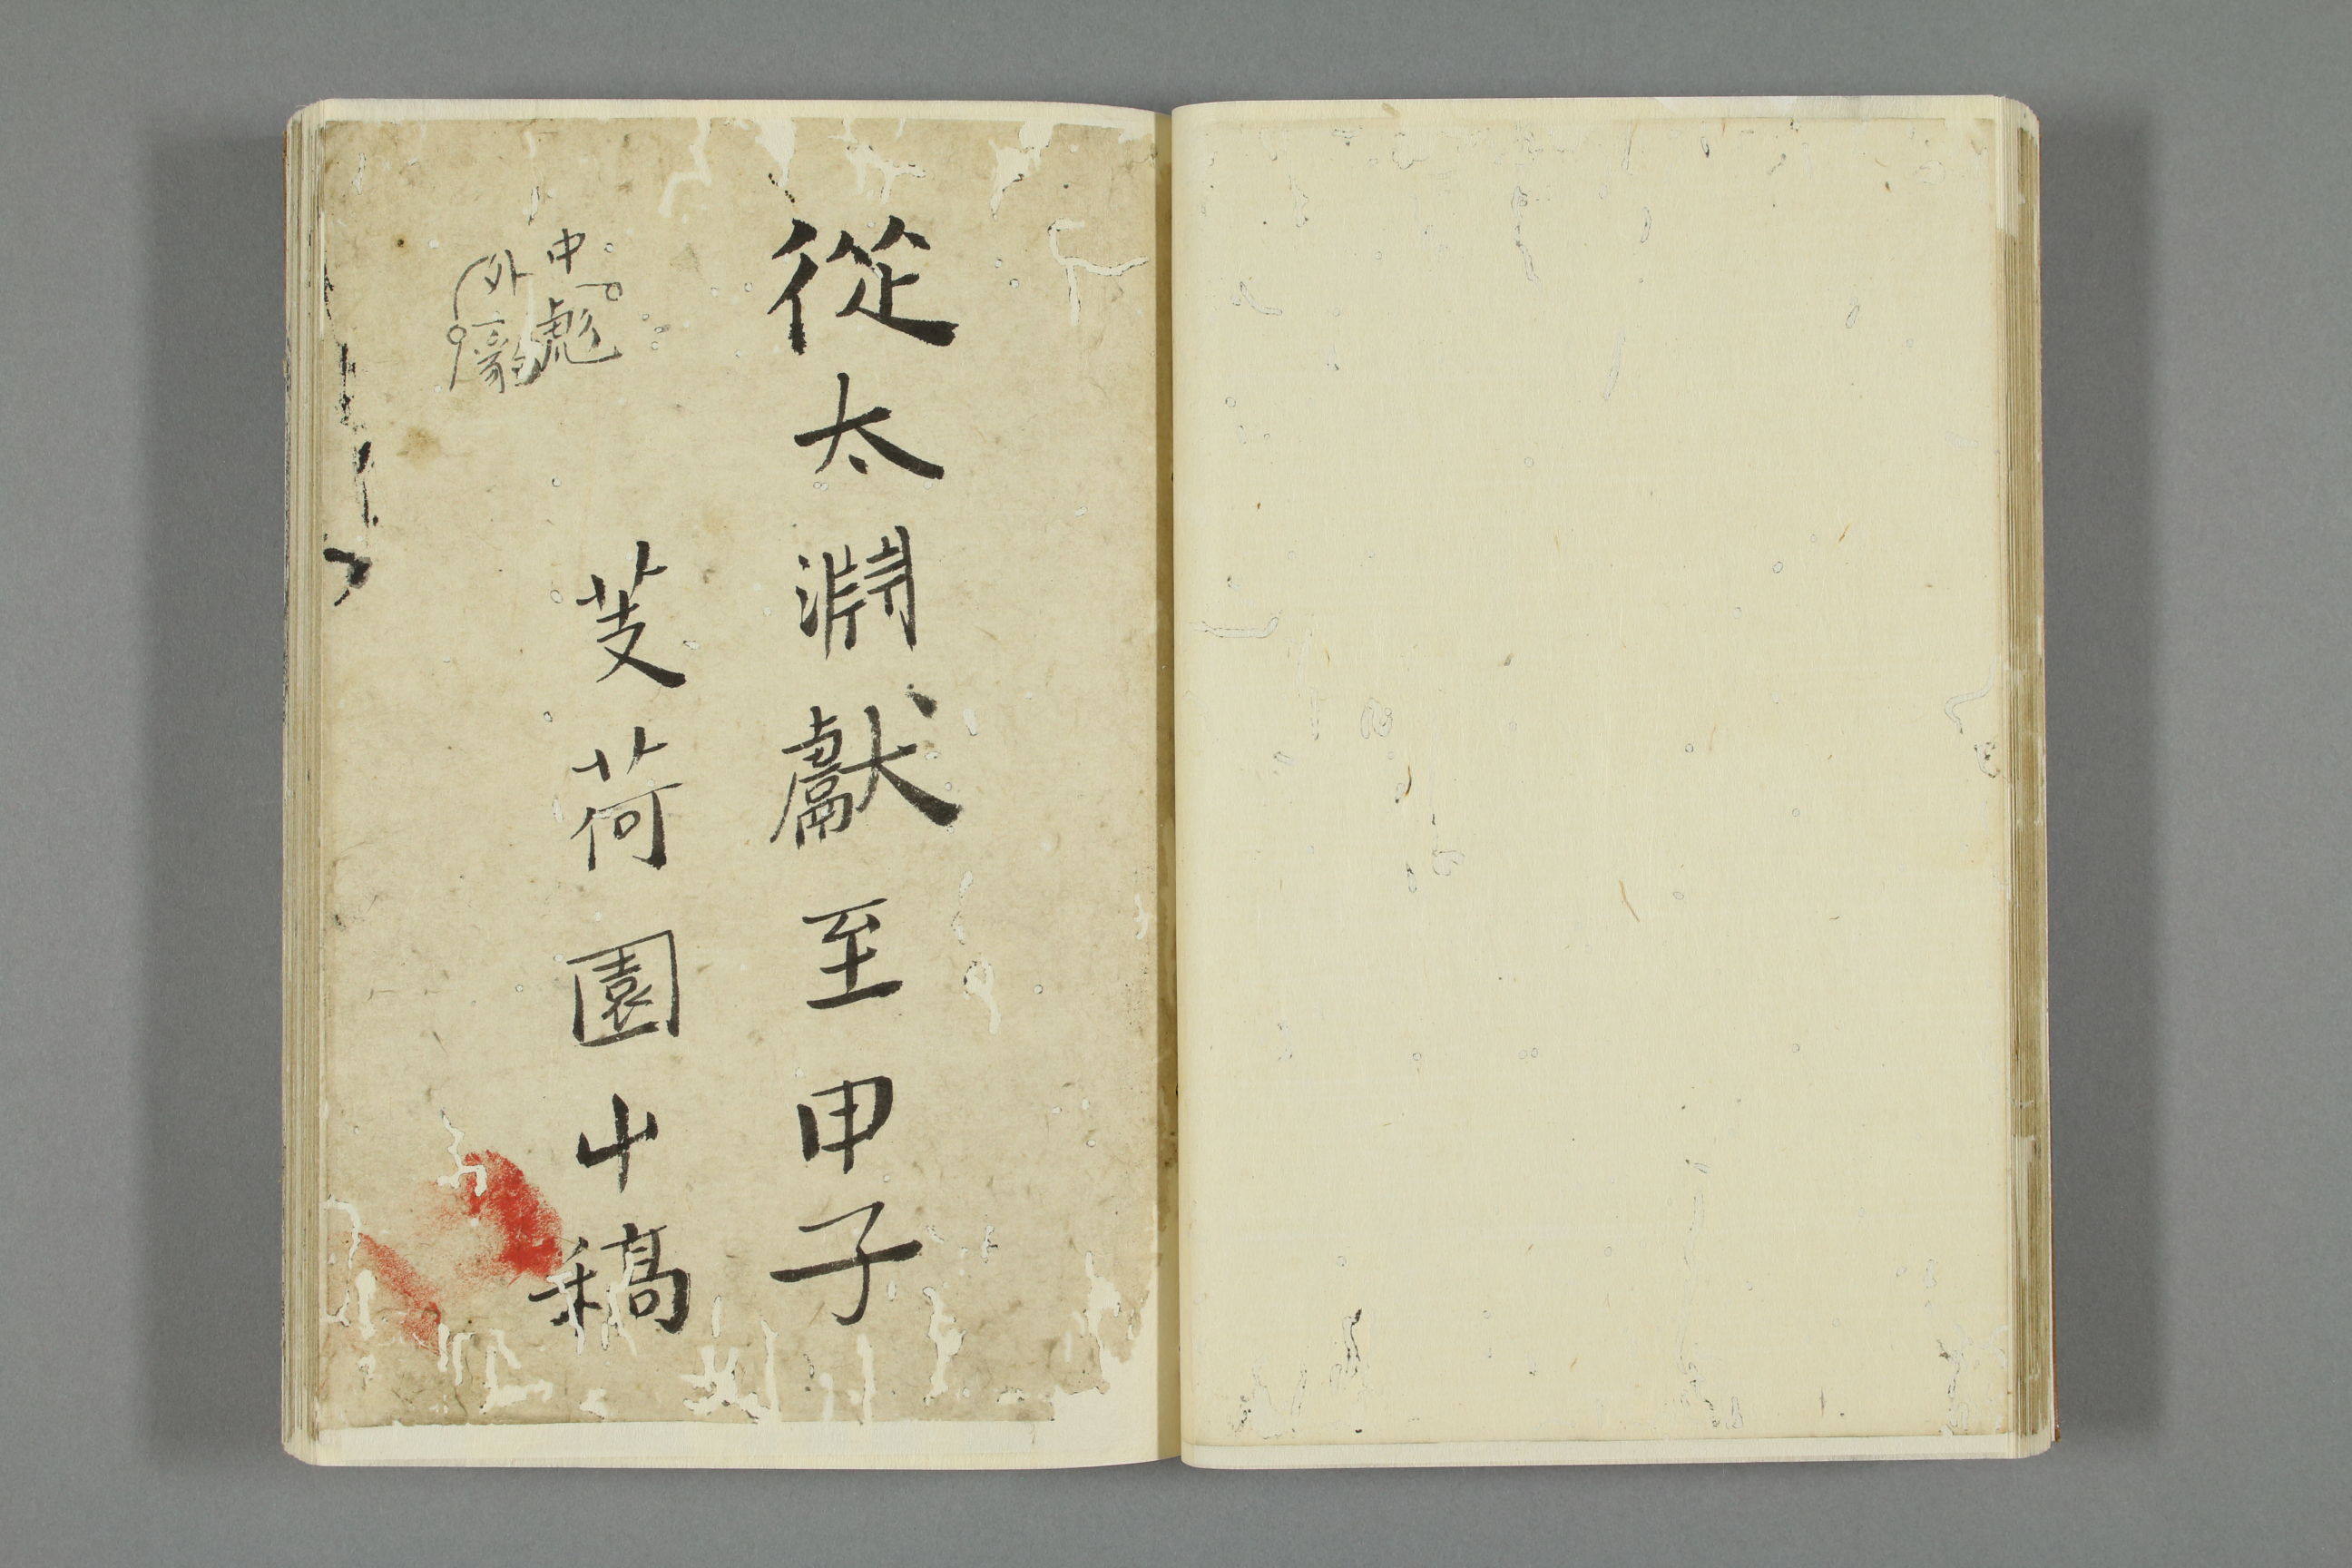 從太淵獻至甲子
芰荷園中稿
中彪
外